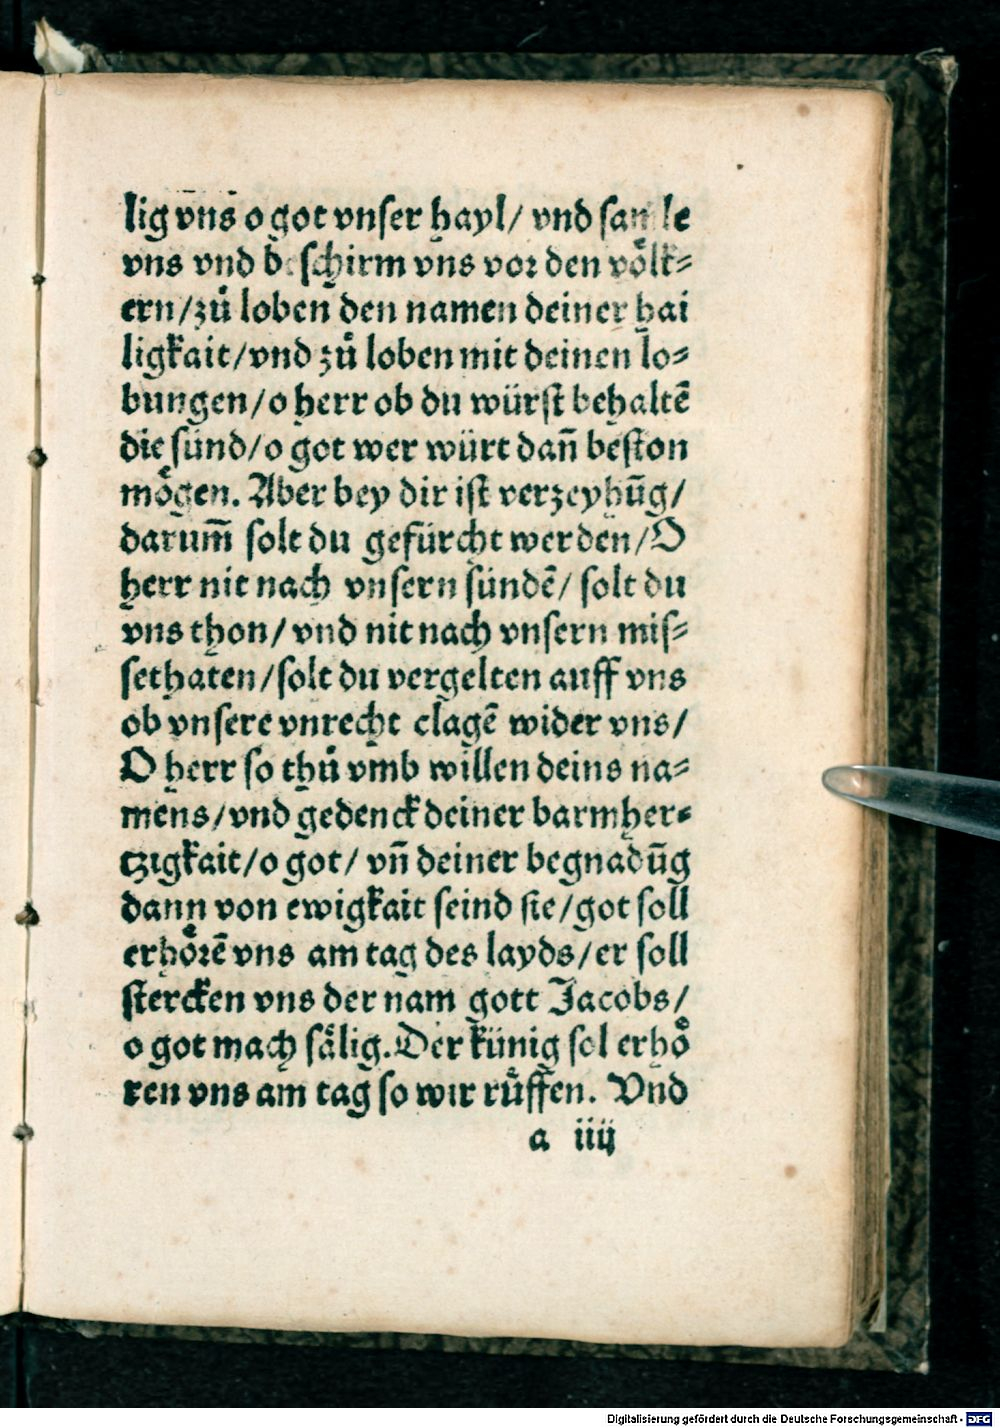 lig vns o got vnser hayl/ vnd samle
vns vnd beschirm vns vor den voͤlk⸗
ern/zuͦ loben den namen deiner hai
ligkait/vnd zuͦ loben mit deinen lo⸗
bungen/o herr ob du würst behaltē
die sünd/o got wer würt dañ beston
moͤgen. Aber bey dir ist verzeyhūg/
darum̄ solt du gefürcht werden/O
herr nit nach vnsern sündē/ solt du
vns thon/ vnd nit nach vnsern mis⸗
sethaten/solt du vergelten auff vns
ob vnsere vnrecht clagē wider vns/
O herr so thuͦ vmb willen deins na⸗
mens/vnd gedenck deiner barmher⸗
tzigkait/o got/ vn̄ deiner begnadūg
dann von ewigkait seind sie/got soll
erhoͤrē vns am tag des layds/er soll
stercken vns der nam gott Jacobs/
o got mach saͤlig. Der künig sol erhoͤ
ren vns am tag so wir ruͤffen. Vnd
a iiij
Digitalisierung gefördert durch die Deutsche Forschungsgemeinschaft - DFG